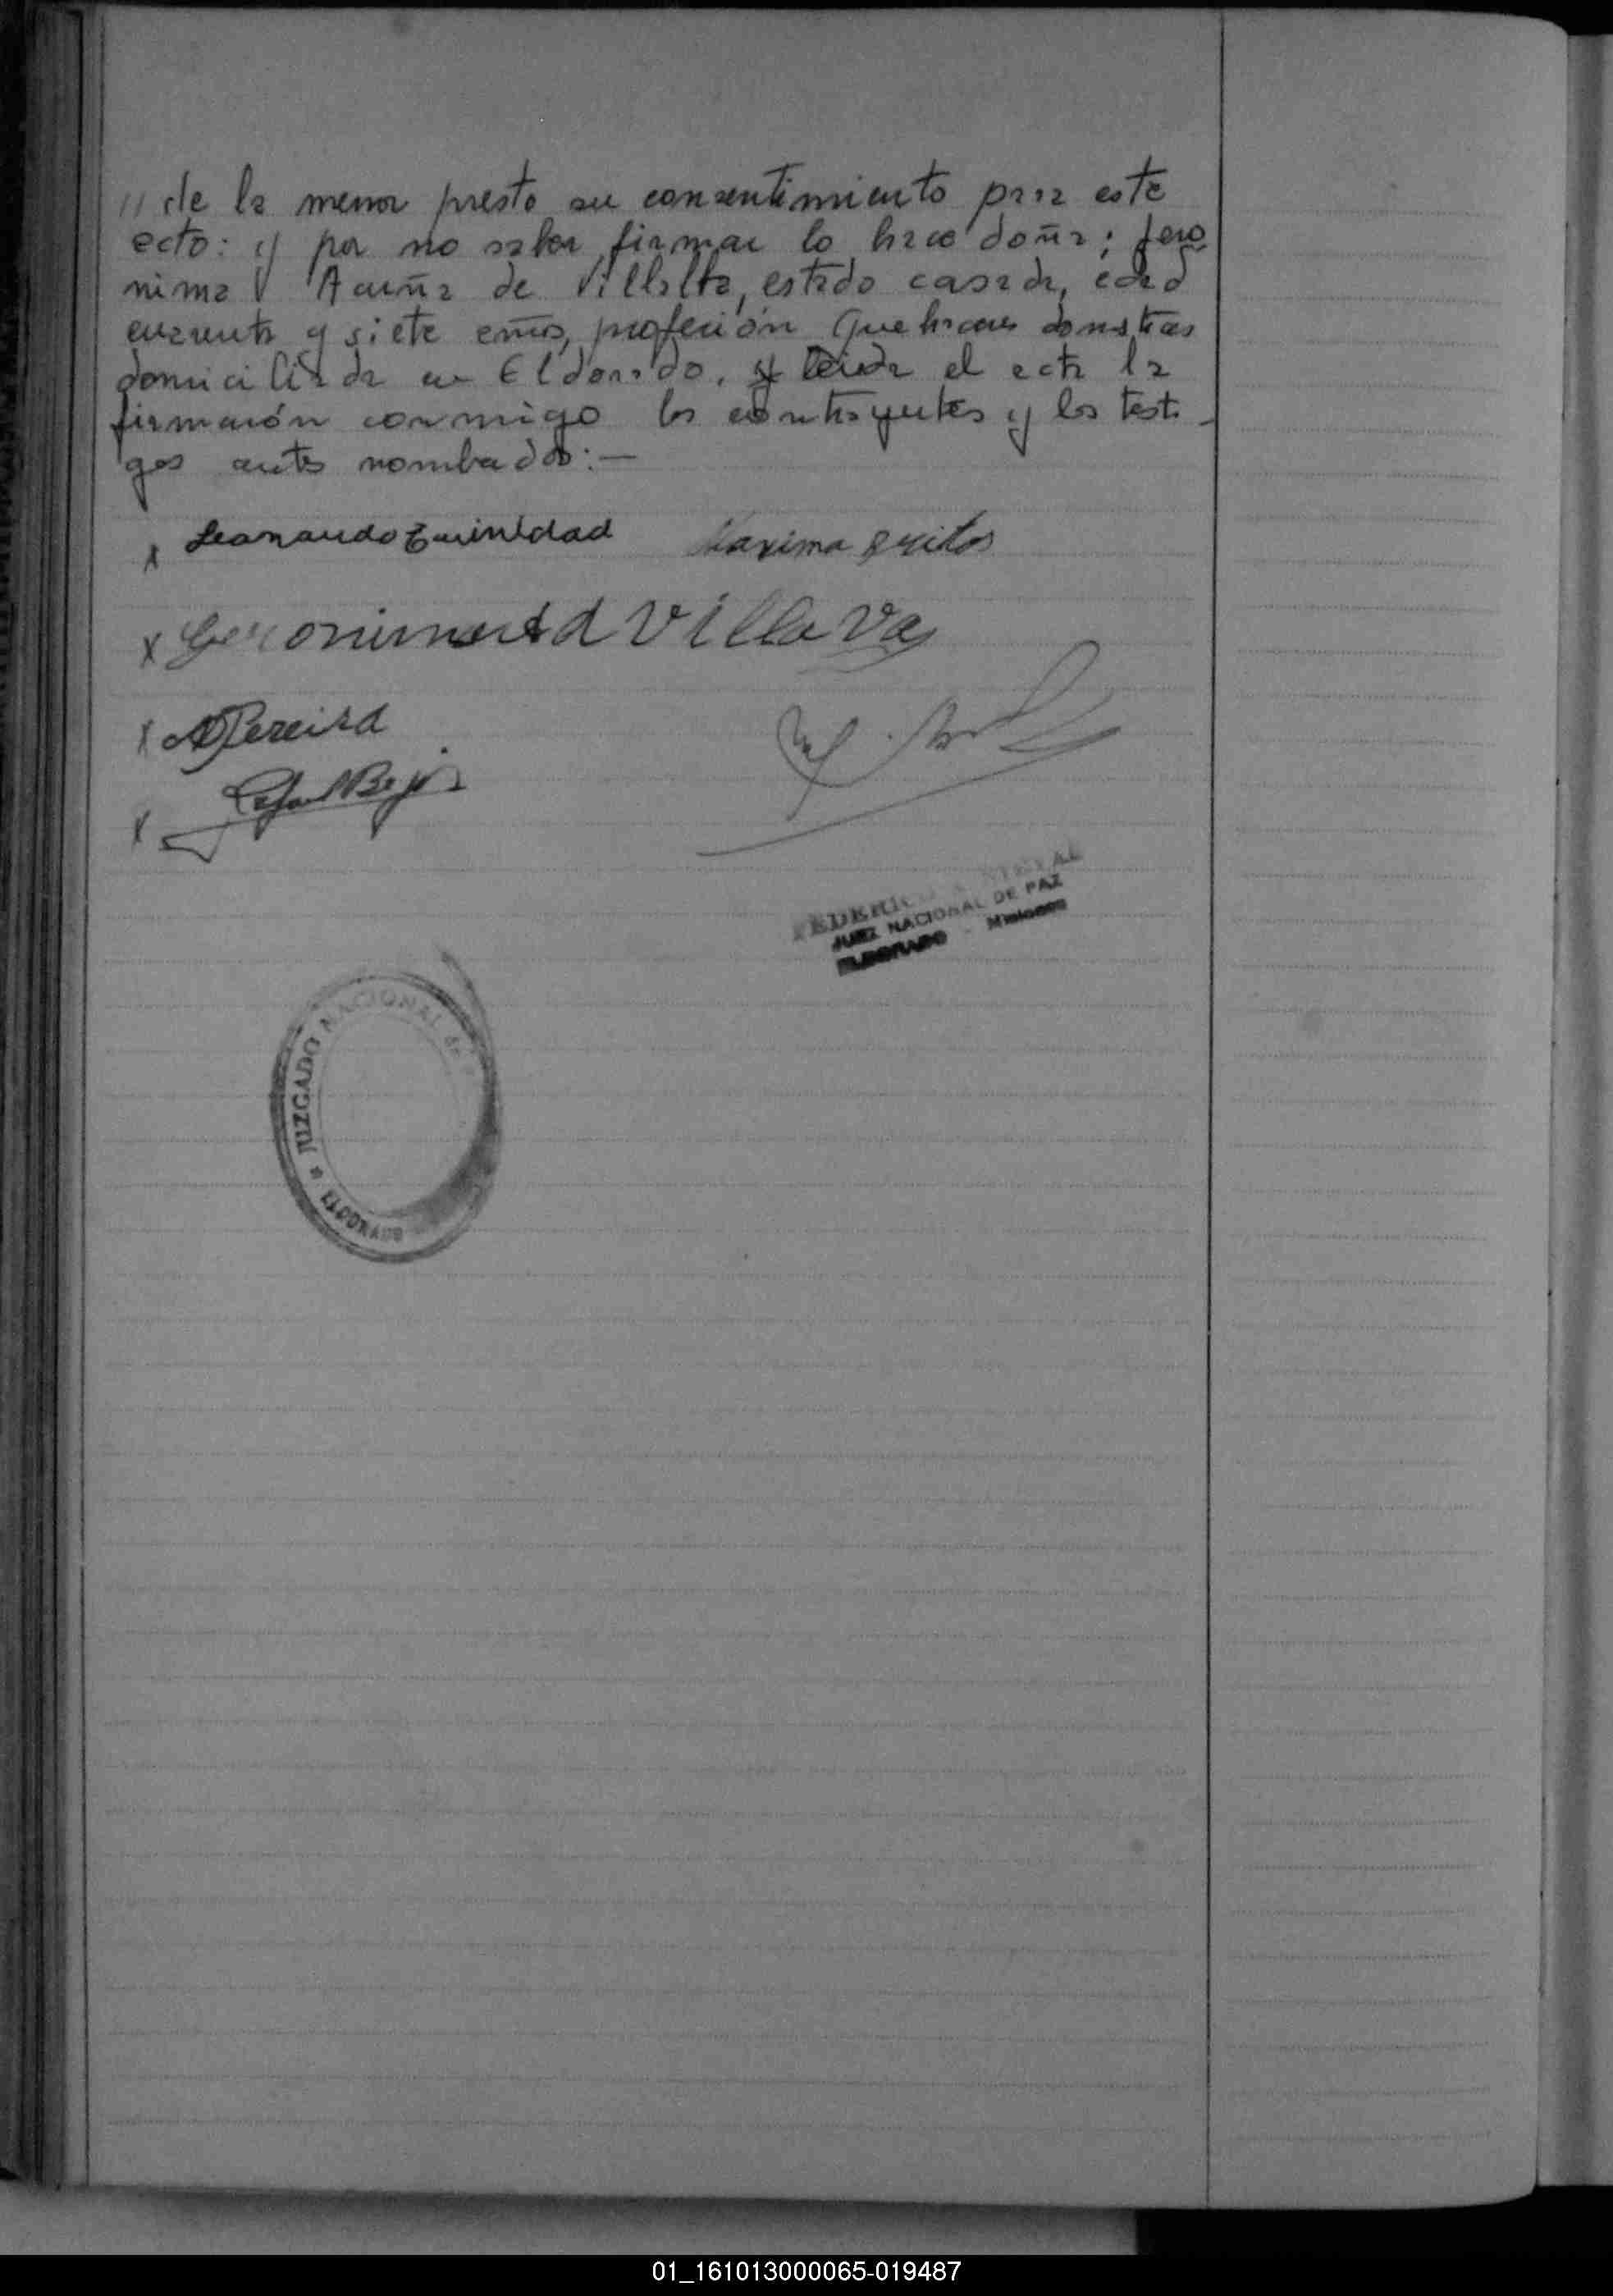 // de la menor presto su consentimiento para este
acto: y por no saber firmar lo hace doña: Jero
nima Acuña de Villalba, estado casada, edad
cuarenta y siete años, profesión Quehaceres domesticos
domiciliada en Eldorado. y leida el acta la
firmarón conmigo los contrayentes y los testi-
gos antes nombrados:—
x Leonardo Trinidad Maxima Britos
x Geronima A d Villava
x A Pereira
x Rafael Bejo
FEDERICO
JUEZ NACIONAL DE PAZ
ELDORADO - Misiones
JUZGADO NACIONAL de
ELDORADO
01_161013000065-019487